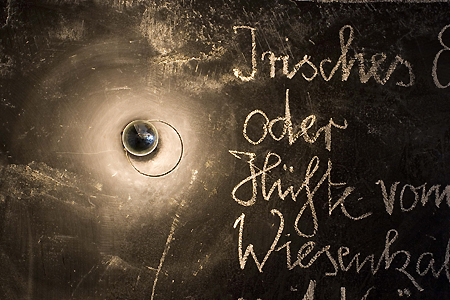 Irisches E
oder
Hüfte vom
Wiesenkal